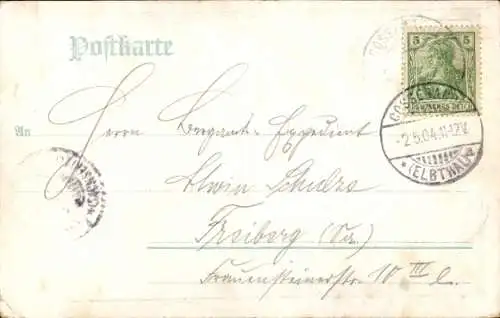 Postkarte
5
DEUTSCHES REICH
COSSEBAUDE
-2.5.04.11-12V.
*(ELBTHAL)*
An Herrn Bergamts-Expedient
Alwin Schulze
Freiberg (Sa.)
Frauensteinerstr. 10 III l.